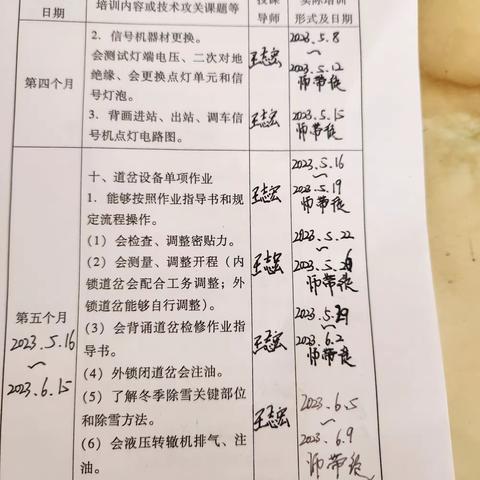 日期
培训内容或技术攻关课题等
授课
导师
实际培训
形式及日期
第四个月
2. 信号机器材更换。
会测试灯端电压、二次对地
绝缘、会更换点灯单元和信
号灯泡。
王志宏
2023.5.8
~
2023.5.12
师带徒
3. 背画进站、出站、调车信
号机点灯电路图。
王志宏
2023.5.15
师带徒
第五个月
2023.5.16
~
2023.6.15
十、道岔设备单项作业
1. 能够按照作业指导书和规
定流程操作。
王志宏
2023.5.16
~
2023.5.19
师带徒
(1) 会检查、调整密贴力。
(2) 会测量、调整开程（内
锁道岔会配合工务调整；外
锁道岔能够自行调整）。
王志宏
2023.5.22
~
2023.5.26
师带徒
(3) 会背诵道岔检修作业指
导书。
(4) 外锁闭道岔会注油。
王志宏
2023.5.29
~
2023.6.2
师带徒
(5) 了解冬季除雪关键部位
和除雪方法。
(6) 会液压转辙机排气、注
油。
王志宏
2023.6.5
~
2023.6.9
师带徒